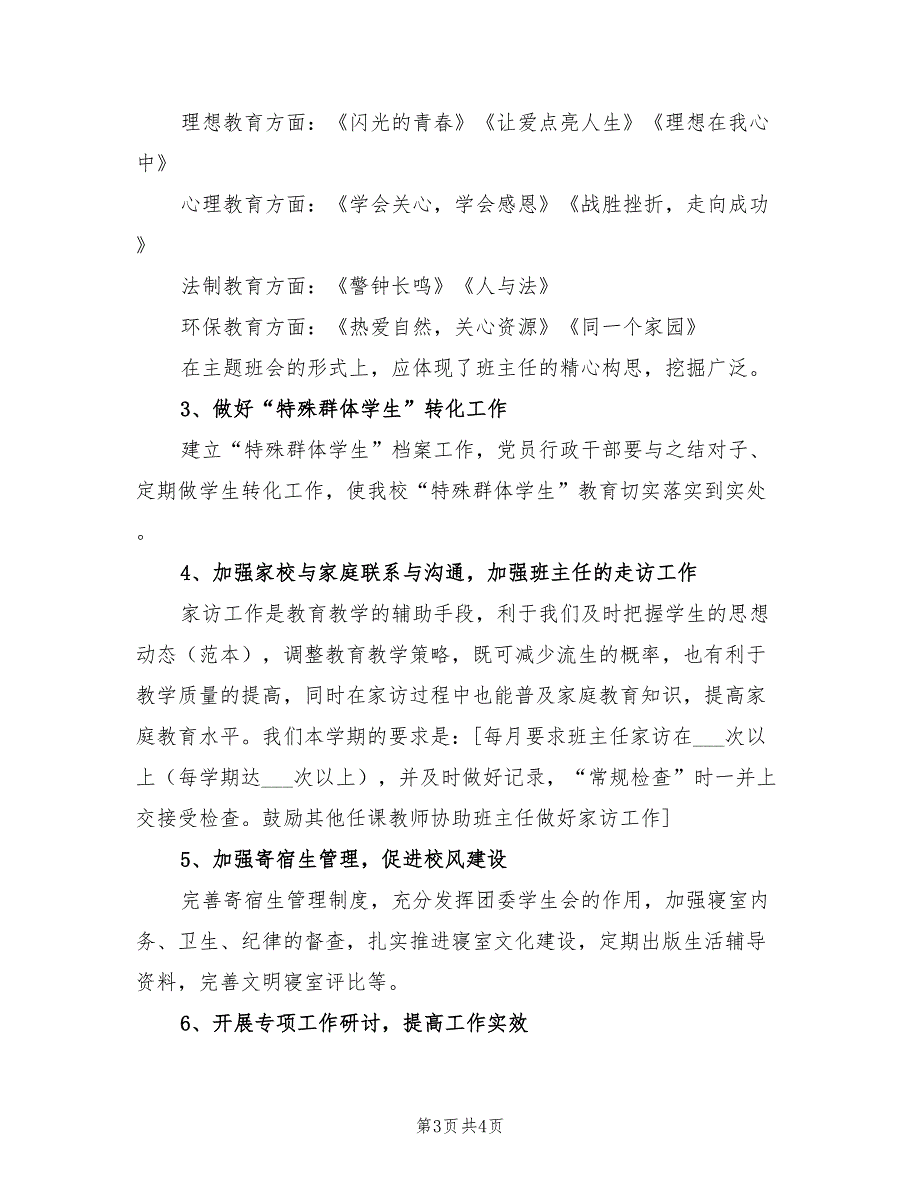 理想教育方面：《闪光的青春》《让爱点亮人生》《理想在我心
中》
心理教育方面：《学会关心，学会感恩》《战胜挫折，走向成功
》
法制教育方面：《警钟长鸣》《人与法》
环保教育方面：《热爱自然，关心资源》《同一个家园》
在主题班会的形式上，应体现了班主任的精心构思，挖掘广泛。
3、做好“特殊群体学生”转化工作
建立“特殊群体学生”档案工作，党员行政干部要与之结对子、
定期做学生转化工作，使我校“特殊群体学生”教育切实落实到实处
。
4、加强家校与家庭联系与沟通，加强班主任的走访工作
家访工作是教育教学的辅助手段，利于我们及时把握学生的思想
动态（范本），调整教育教学策略，既可减少流生的概率，也有利于
教学质量的提高，同时在家访过程中也能普及家庭教育知识，提高家
庭教育水平。我们本学期的要求是：[每月要求班主任家访在___次以
上（每学期达___次以上），并及时做好记录，“常规检查”时一并上
交接受检查。鼓励其他任课教师协助班主任做好家访工作]
5、加强寄宿生管理，促进校风建设
完善寄宿生管理制度，充分发挥团委学生会的作用，加强寝室内
务、卫生、纪律的督查，扎实推进寝室文化建设，定期出版生活辅导
资料，完善文明寝室评比等。
6、开展专项工作研讨，提高工作实效
第3页 共4页